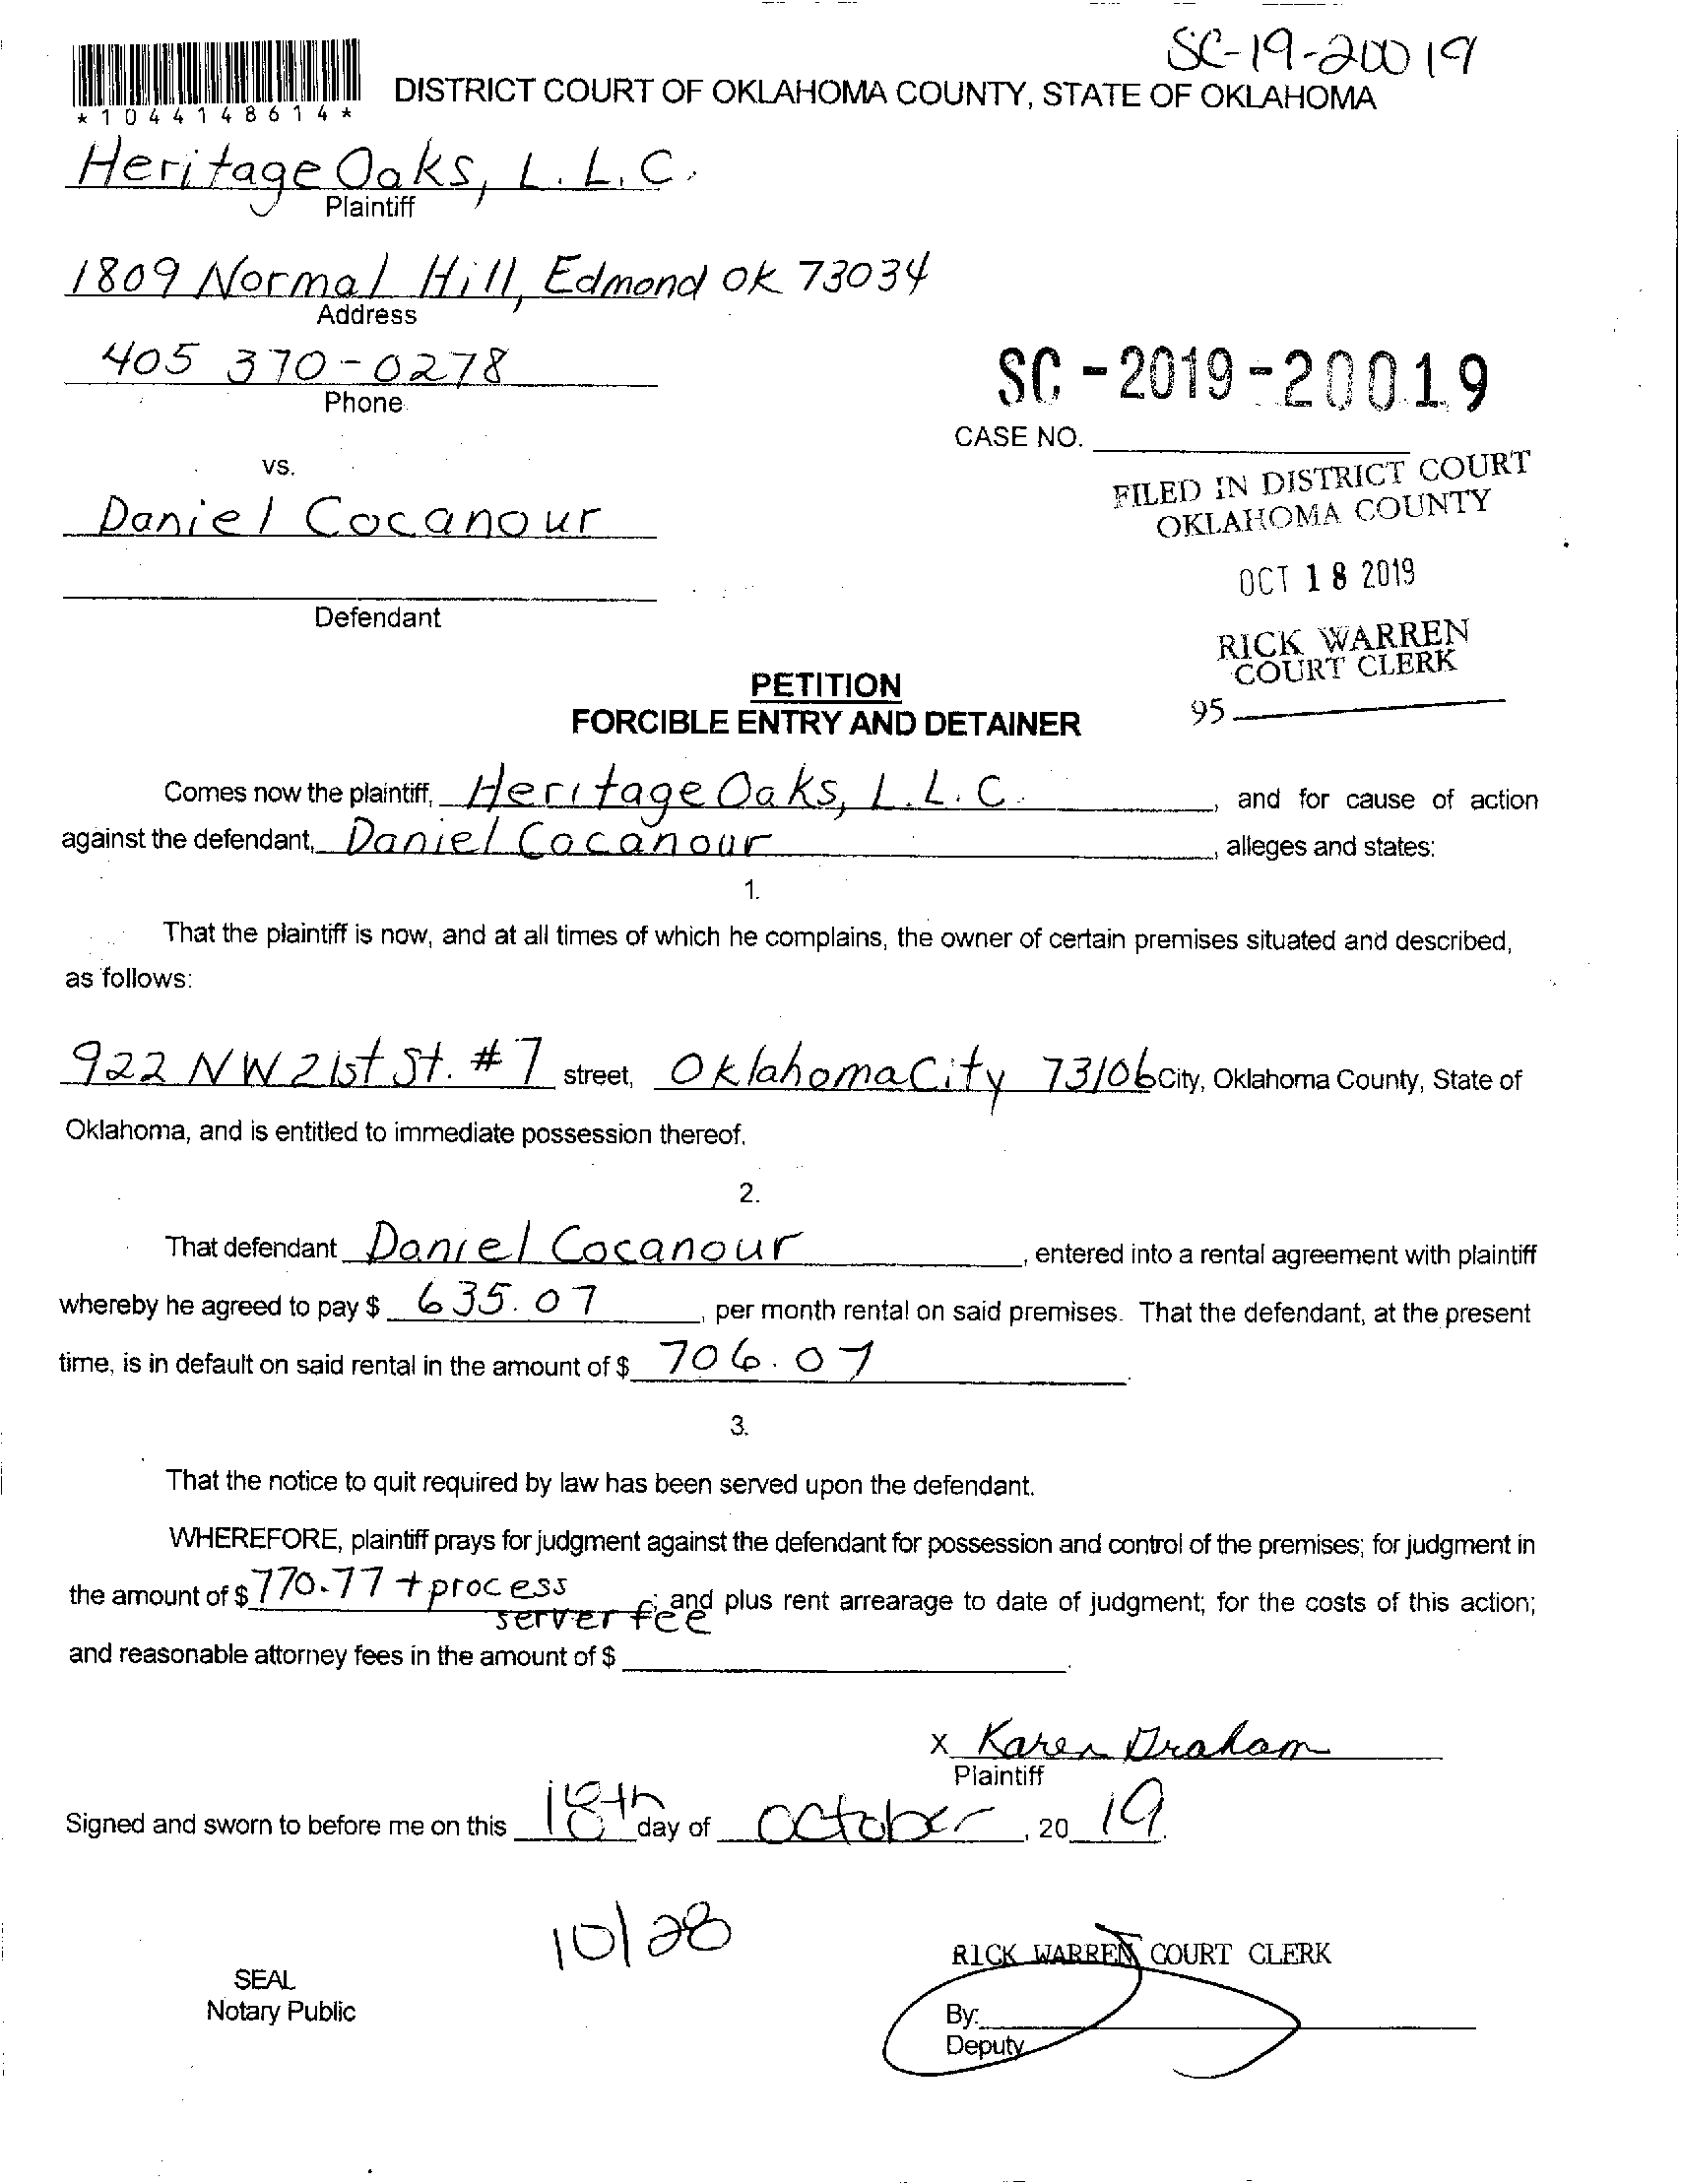 SC-19-20019
*1044148614*
DISTRICT COURT OF OKLAHOMA COUNTY, STATE OF OKLAHOMA
Heritage Oaks, L.L.C.
Plaintiff
1809 Normal Hill, Edmond OK 73034
Address
405 370-0278
Phone
SC-2019-20019
CASE NO.
vs.
FILED IN DISTRICT COURT
OKLAHOMA COUNTY
Daniel Cocanour
OCT 18 2019
Defendant
RICK WARREN
COURT CLERK
95
PETITION
FORCIBLE ENTRY AND DETAINER
Comes now the plaintiff, Heritage Oaks, L.L.C. , and for cause of action
against the defendant, Daniel Cocanour , alleges and states:
1.
That the plaintiff is now, and at all times of which he complains, the owner of certain premises situated and described,
as follows:
922 NW 21st St. #7 street, Oklahoma City 73106 City, Oklahoma County, State of
Oklahoma, and is entitled to immediate possession thereof.
2.
That defendant Daniel Cocanour , entered into a rental agreement with plaintiff
whereby he agreed to pay $ 635.07 , per month rental on said premises. That the defendant, at the present
time, is in default on said rental in the amount of $ 706.07 .
3.
That the notice to quit required by law has been served upon the defendant.
WHEREFORE, plaintiff prays for judgment against the defendant for possession and control of the premises; for judgment in
the amount of $ 770.77 + process server fee ; and plus rent arrearage to date of judgment; for the costs of this action;
and reasonable attorney fees in the amount of $ .
X Karen Draham
Plaintiff
Signed and sworn to before me on this 18th day of October , 20 19.
10/28
RICK WARREN COURT CLERK
SEAL
Notary Public
By:
Deputy